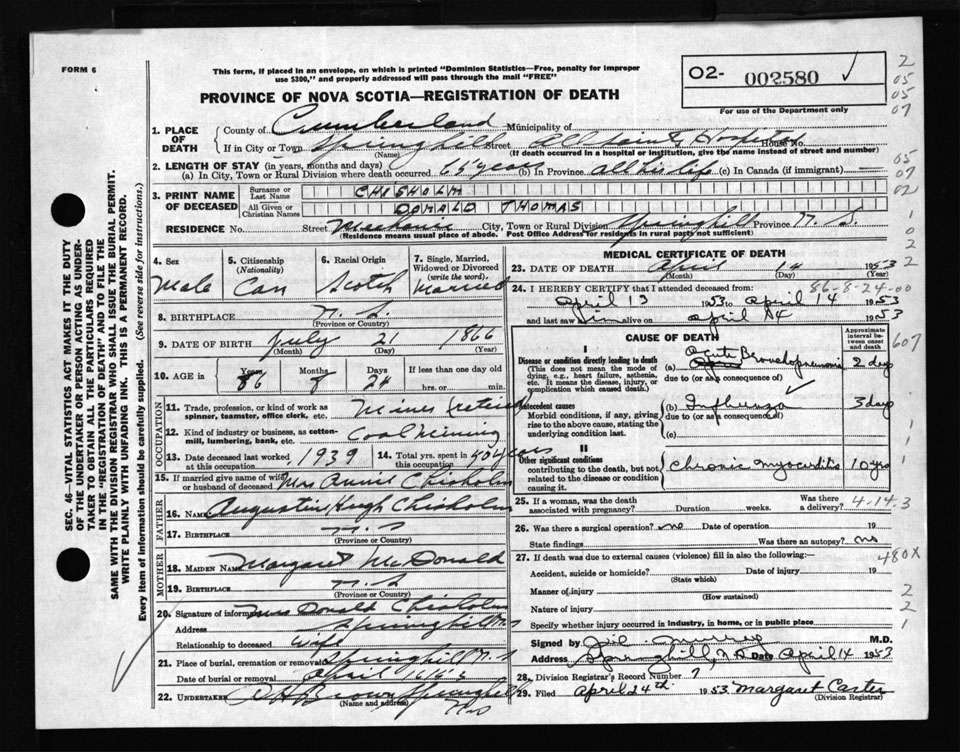 FORM 6
This form, if placed in an envelope, on which is printed "Dominion Statistics—Free, penalty for improper
use $300," and properly addressed will pass through the mail "FREE"
O2- 002580 ✓
For use of the Department only
PROVINCE OF NOVA SCOTIA—REGISTRATION OF DEATH
1. PLACE OF DEATH
County of Cumberland Municipality of
If in City or Town Springhill Street All Saints Hospital House No.
(Name) (If death occurred in a hospital or institution, give the name instead of street and number)
2. LENGTH OF STAY (in years, months and days)
(a) In City, Town or Rural Division where death occurred 65 years (b) In Province All his life (c) In Canada (if immigrant)
3. PRINT NAME OF DECEASED
Surname or Last Name CHISHOLM
All Given or Christian Names DONALD THOMAS
RESIDENCE No. Street City, Town or Rural Division Springhill Province N. S.
(Residence means usual place of abode. Post Office Address for residents in rural parts not sufficient)
4. Sex Male
5. Citizenship (Nationality) Can
6. Racial Origin Scotch
7. Single, Married, Widowed or Divorced (write the word) Married
8. BIRTHPLACE N. S.
(Province or Country)
9. DATE OF BIRTH July 21 1866
(Month) (Day) (Year)
10. AGE in Years 86 Months 8 Days 24 If less than one day old
hrs. or min.
OCCUPATION
11. Trade, profession, or kind of work as spinner, teamster, office clerk, etc. Miner (retired)
12. Kind of industry or business, as cotton-mill, lumbering, bank, etc. Coal Mining
13. Date deceased last worked at this occupation 1939 14. Total yrs. spent in this occupation 40 years
15. If married give name of wife or husband of deceased Mrs Annie Chisholm
FATHER
16. NAME Augustin Hugh Chisholm
17. BIRTHPLACE N. S
(Province or Country)
MOTHER
18. MAIDEN NAME Margaret McDonald
19. BIRTHPLACE N. S
(Province or Country)
20. Signature of informant Mrs Donald Chisholm
Address Springhill NS
Relationship to deceased Wife
21. Place of burial, cremation or removal Springhill N. S
Date of burial or removal April 16
22. UNDERTAKER Brown Springhill
(Name and address)
MEDICAL CERTIFICATE OF DEATH
23. DATE OF DEATH April 14 1953
(Month) (Day) (Year)
86-8-24-00
24. I HEREBY CERTIFY that I attended deceased from:
April 13 1953 to April 14 1953
and last saw him alive on April 14 1953
CAUSE OF DEATH
Approximate interval between onset and death
I
Disease or condition directly leading to death
(This does not mean the mode of dying, e.g., heart failure, asthenia, etc. It means the disease, injury, or complication which caused death.)
(a) Acute Bronchopneumonia 2 days
due to (or as a consequence of)
Antecedent causes
Morbid conditions, if any, giving rise to the above cause, stating the underlying condition last.
(b) Influenza 3 days
due to (or as a consequence of)
(c)
II
Other significant conditions
contributing to the death, but not related to the disease or condition causing it.
Chronic myocarditis 10 yrs
25. If a woman, was the death associated with pregnancy? Duration weeks. Was there a delivery? 4-14-3
26. Was there a surgical operation? no Date of operation 19
State findings Was there an autopsy? no
27. If death was due to external causes (violence) fill in also the following:— 480X
Accident, suicide or homicide? Date of injury 19
(State which)
Manner of injury
(How sustained)
Nature of injury
Specify whether injury occurred in industry, in home, or in public place
Signed by M.D.
Address Springhill, N.S. Date April 14 1953
28. Division Registrar's Record Number 7
29. Filed April 24th 1953 Margaret
(Division Registrar)
SEC. 46—VITAL STATISTICS ACT MAKES IT THE DUTY
OF THE UNDERTAKER OR PERSON ACTING AS UNDER-
TAKER TO OBTAIN ALL THE PARTICULARS REQUIRED
IN THE "REGISTRATION OF DEATH" AND TO FILE THE
SAME WITH THE DIVISION REGISTRAR WHO SHALL ISSUE THE BURIAL PERMIT.
WRITE PLAINLY WITH UNFADING INK. THIS IS A PERMANENT RECORD.
Every item of information should be carefully supplied. (See reverse side for instructions.)
2
05
05
07
05
07
02
1
0
2
2
607
1
1
1
2
2
1